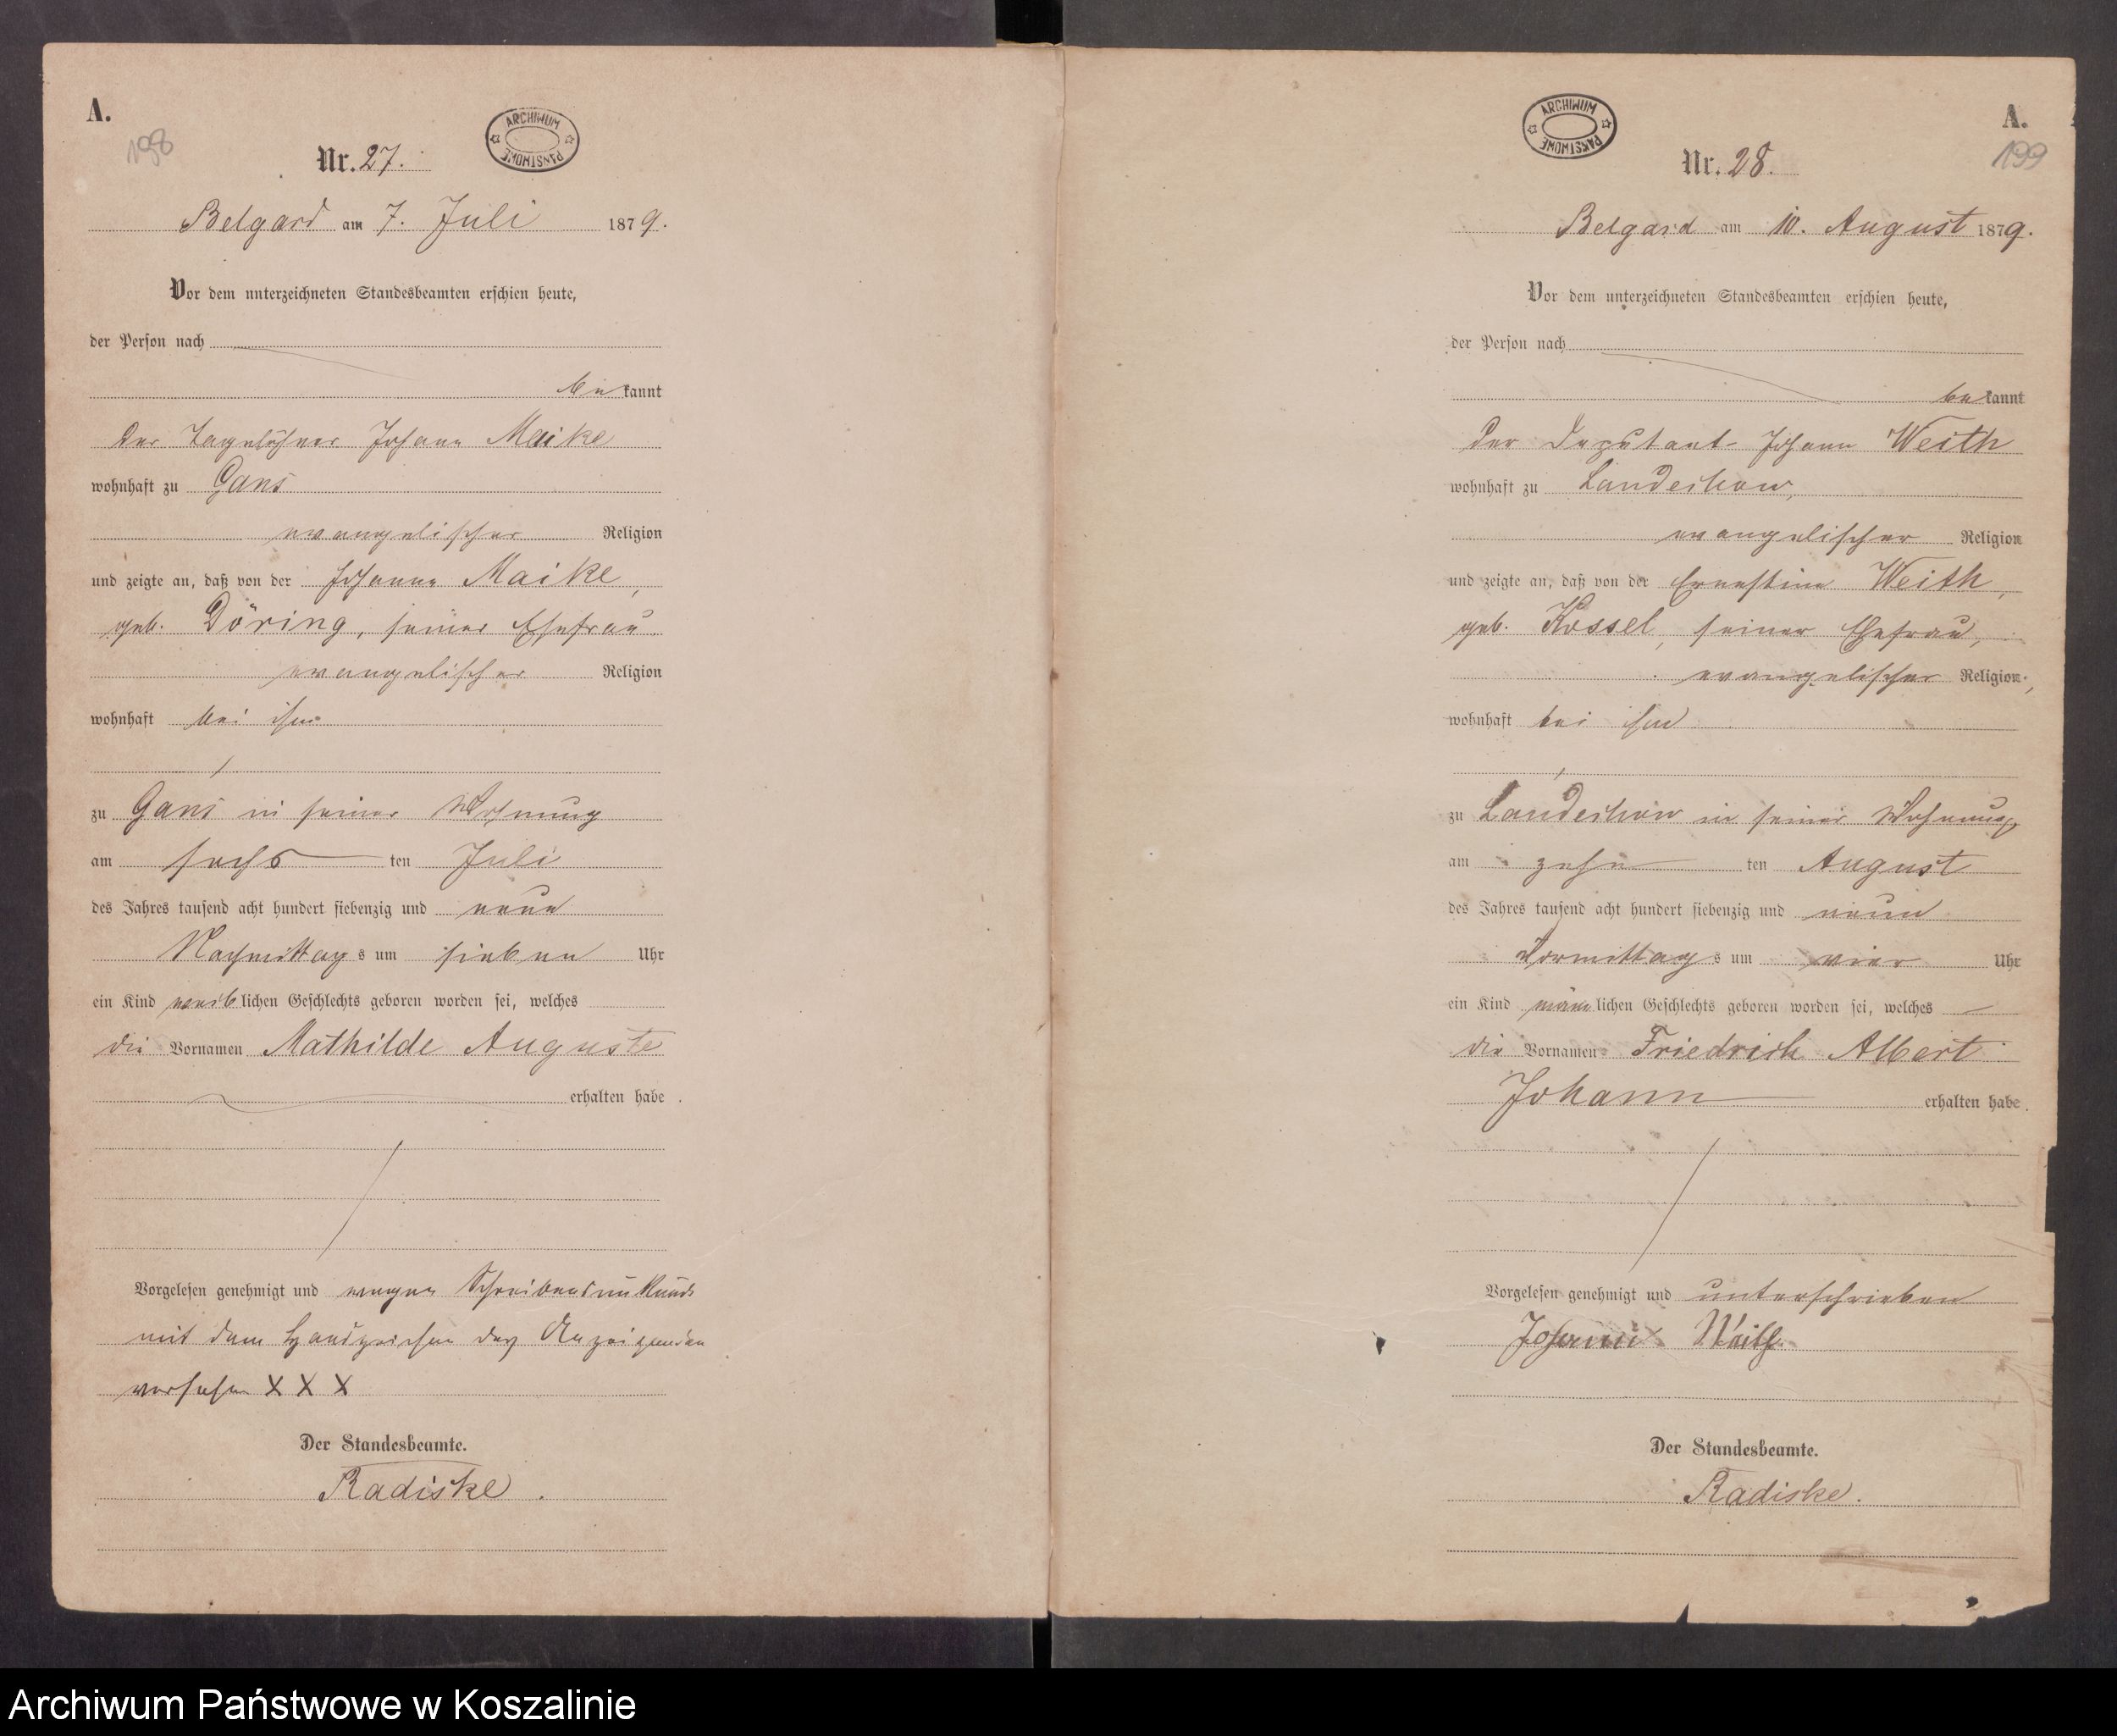 A.
198
Nr. 27.
ARCHIWUM PAŃSTWOWE
Belgard am 7. Juli 1879.
Vor dem unterzeichneten Standesbeamten erschien heute,
der Person nach
bekannt
der Tagelöhner Johann Maike
wohnhaft zu Gans
evangelischer Religion
und zeigte an, daß von der Johanne Maike,
geb. Döring, seiner Ehefrau
evangelischer Religion
wohnhaft bei ihm
zu Gans in seiner Wohnung
am sechs ten Juli
des Jahres tausend acht hundert siebenzig und neun
Nachmittags um sieben Uhr
ein Kind weiblichen Geschlechts geboren worden sei, welches
die Vornamen Mathilde Auguste
erhalten habe.
Vorgelesen genehmigt und wegen Schreibensunkunde
mit dem Handzeichen des Anzeigenden
versehen X X X
Der Standesbeamte.
Radiske.
A.
199
ARCHIWUM PAŃSTWOWE
Nr. 28.
Belgard am 10. August 1879.
Vor dem unterzeichneten Standesbeamten erschien heute,
der Person nach
bekannt
der Deputant Johann Weith
wohnhaft zu Landechow,
evangelischer Religion
und zeigte an, daß von der Ernestine Weith,
geb. Kossel, seiner Ehefrau,
evangelischer Religion,
wohnhaft bei ihm
zu Landechow in seiner Wohnung
am zehn ten August
des Jahres tausend acht hundert siebenzig und neun
Vormittags um vier Uhr
ein Kind männlichen Geschlechts geboren worden sei, welches
die Vornamen Friedrich Albert
Johann erhalten habe.
Vorgelesen genehmigt und unterschrieben
Johann Weith
Der Standesbeamte.
Radiske.
Archiwum Państwowe w Koszalinie